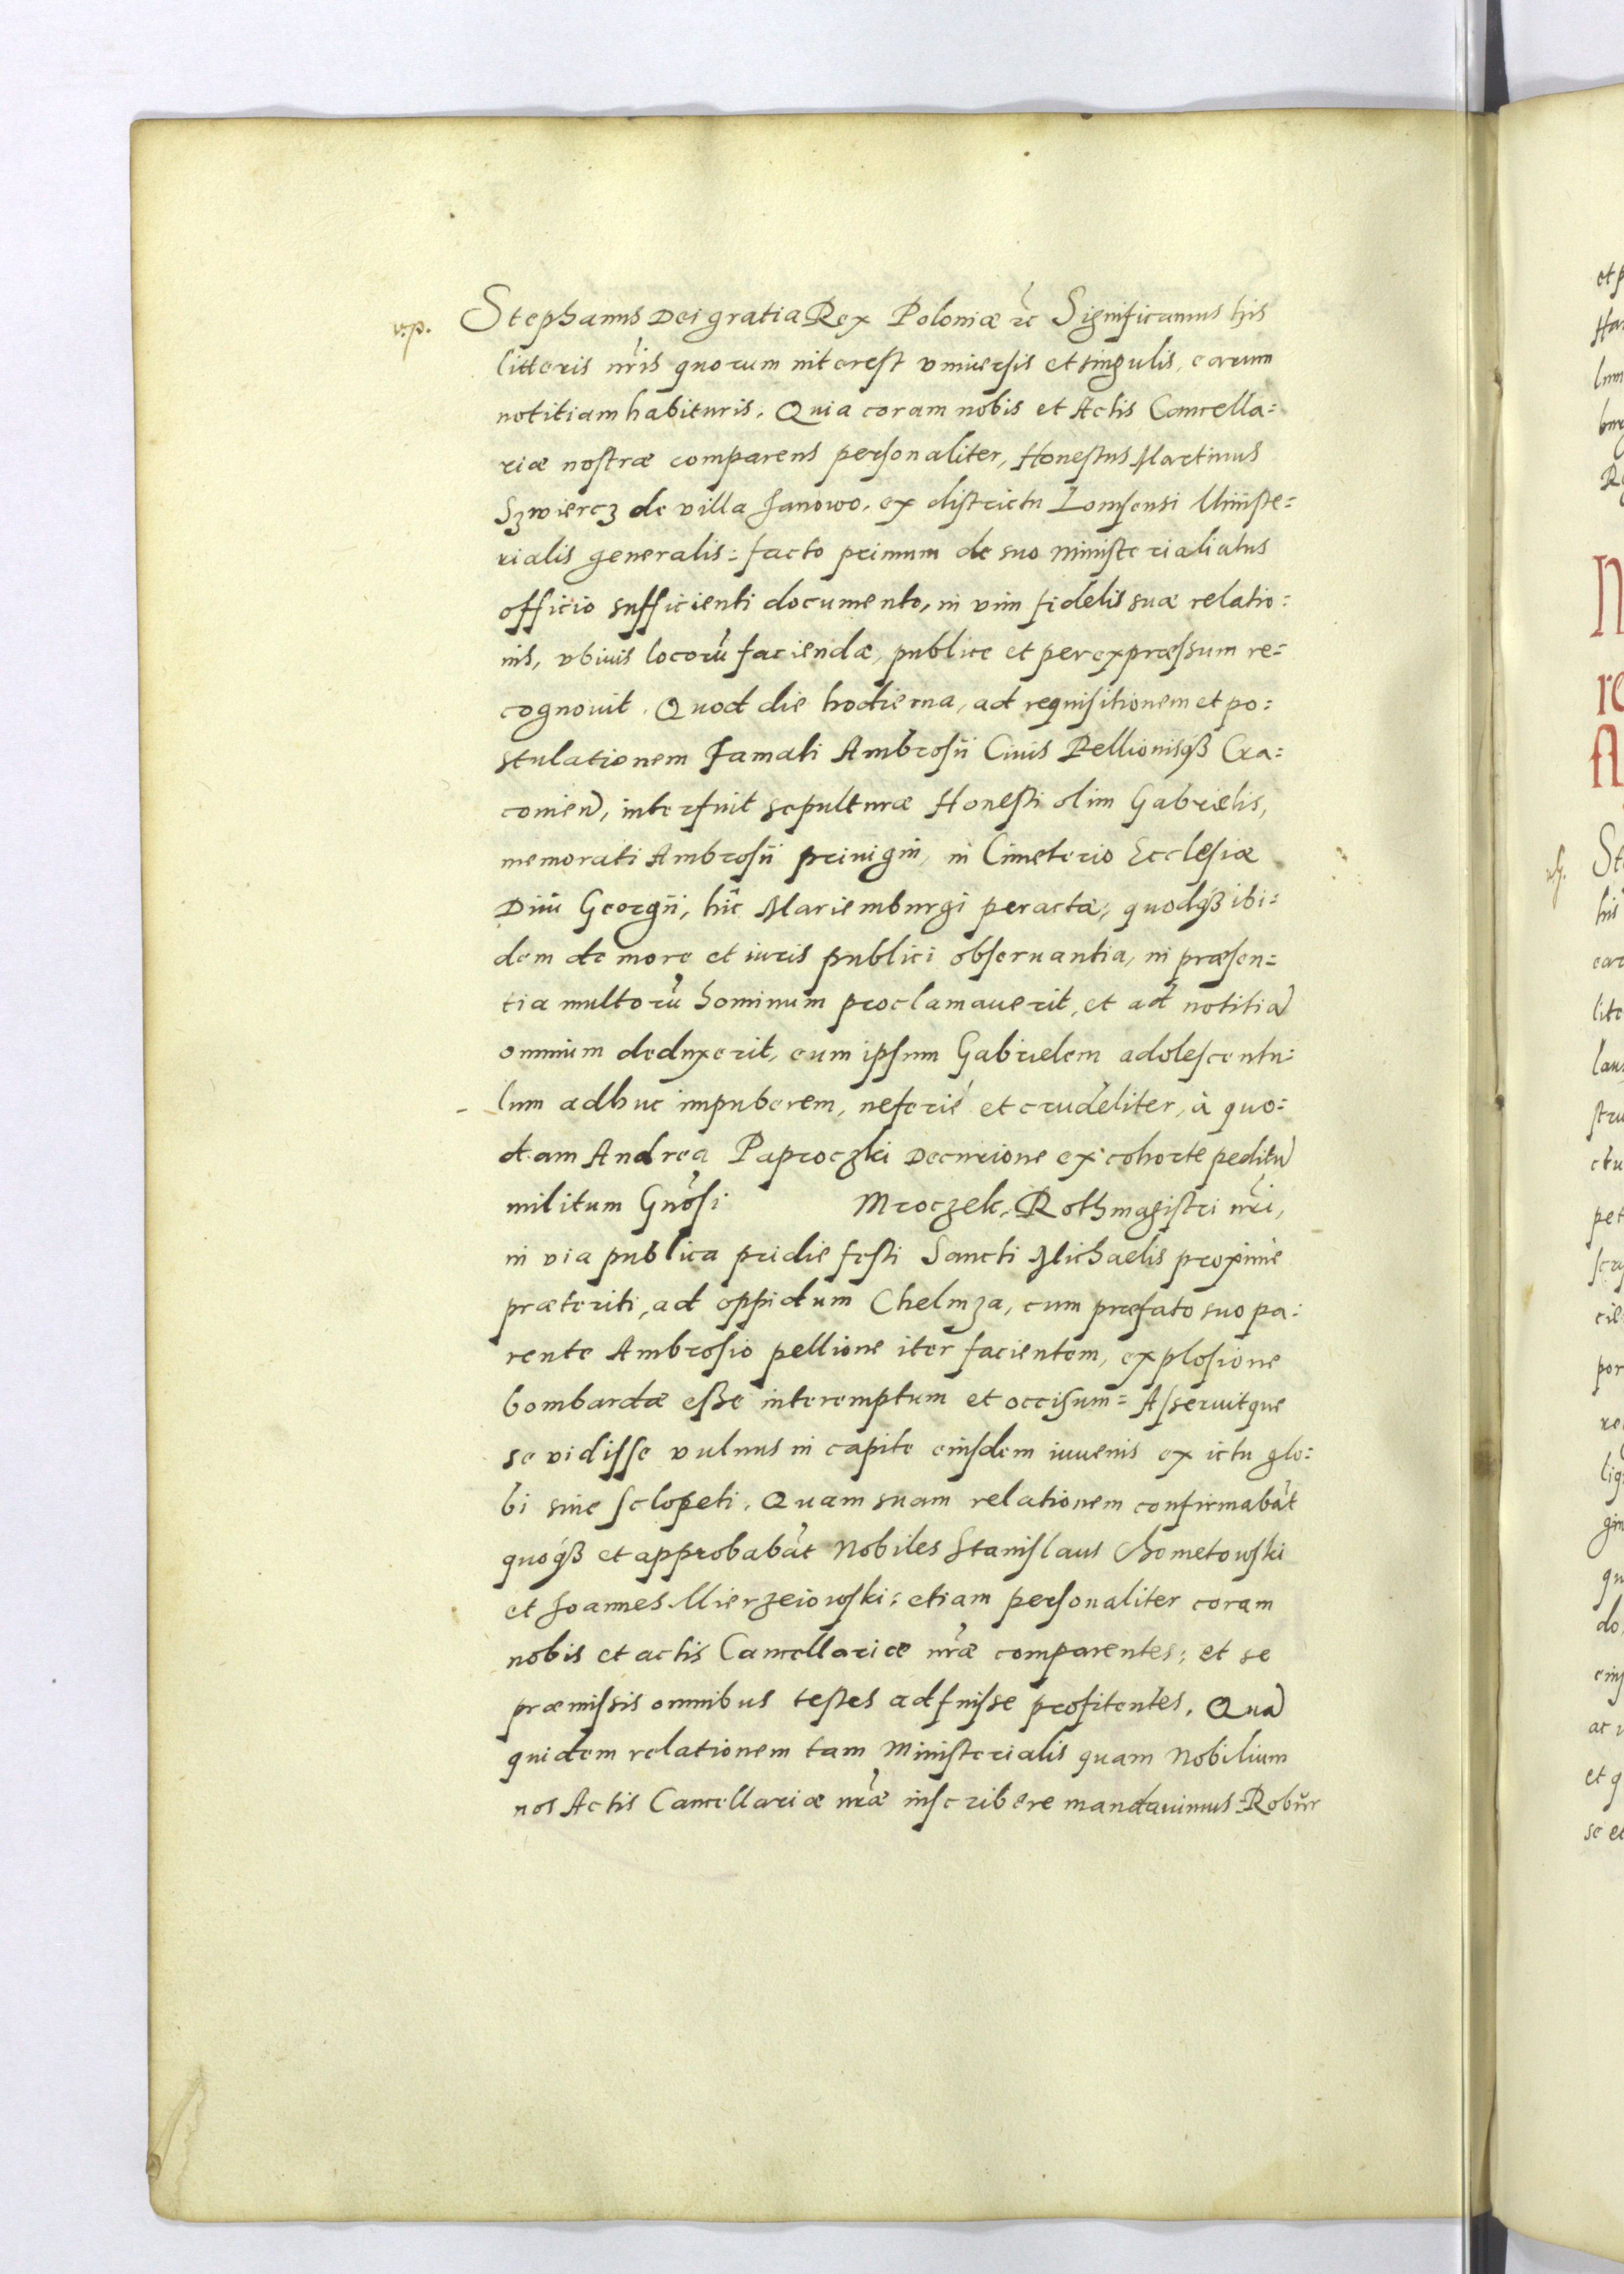 v.p.
Stephanus Dei gratia Rex Poloniæ etc Significamus his
litteris nr̃is quorum interest vniuersis et singulis, earum
notitiam habituris. Quia coram nobis et Actis Cancella=
riæ nostræ comparens personaliter, Honestus Martinus
Szwiercz de villa Janowo, ex districtu Lomsensi Ministe=
rialis generalis: facto primum de suo ministerialiatus
officio sufficienti documento, in vim fidelis suæ relatio=
nis, vbiuis locorũ faciendæ, publice et per expræssum re=
cognouit. Quod die hodierna, ad requisitionem et po=
stulationem Famati Ambrosii Ciuis Pellionisqȝ Cra=
couien̄, interfuit sepulturæ Honesti olim Gabrielis,
memorati Ambrosii priuigni, in Cimeterio Ecclesiæ
Diui Georgii, hîc Mariemburgi peractæ, quodqȝ ibi=
dem de more et iuris publici obseruantia, in præsen=
tia multorũ hominum proclamauerit, et ad notitiã
omnium deduxerit, eum ipsum Gabrielem adolescentu=
lum adhuc impuberem, neferiè et crudeliter, à quo=
dam Andrea Paproczki Decurione ex cohorte peditũ
militum Gnõsi Mroczek, Rothmagistri nr̃i,
in via publica pridie festi Sancti Michaelis proximè
præteriti, ad oppidum Chelmza, cum præfato suo pa=
rente Ambrosio pellione iter facientem, explosione
bombardæ esse interemptum et occisum: Asseruitque
se vidisse vulnus in capite eiusdem iuuenis ex ictu glo=
bi siue sclopeti. Quam suam relationem confirmabãt
quoqȝ et approbabãt Nobiles Stanislaus Chometowski
et Joannes Mierzeiowski: etiam personaliter coram
nobis et actis Cancellariæ nr̃æ comparentes; et se
præmissis omnibus testes adfuisse profitentes. Quã
quidem relationem tam Ministerialis quam Nobilium
nos Actis Cancellariæ nr̃æ inscribere mandauimus. Robur